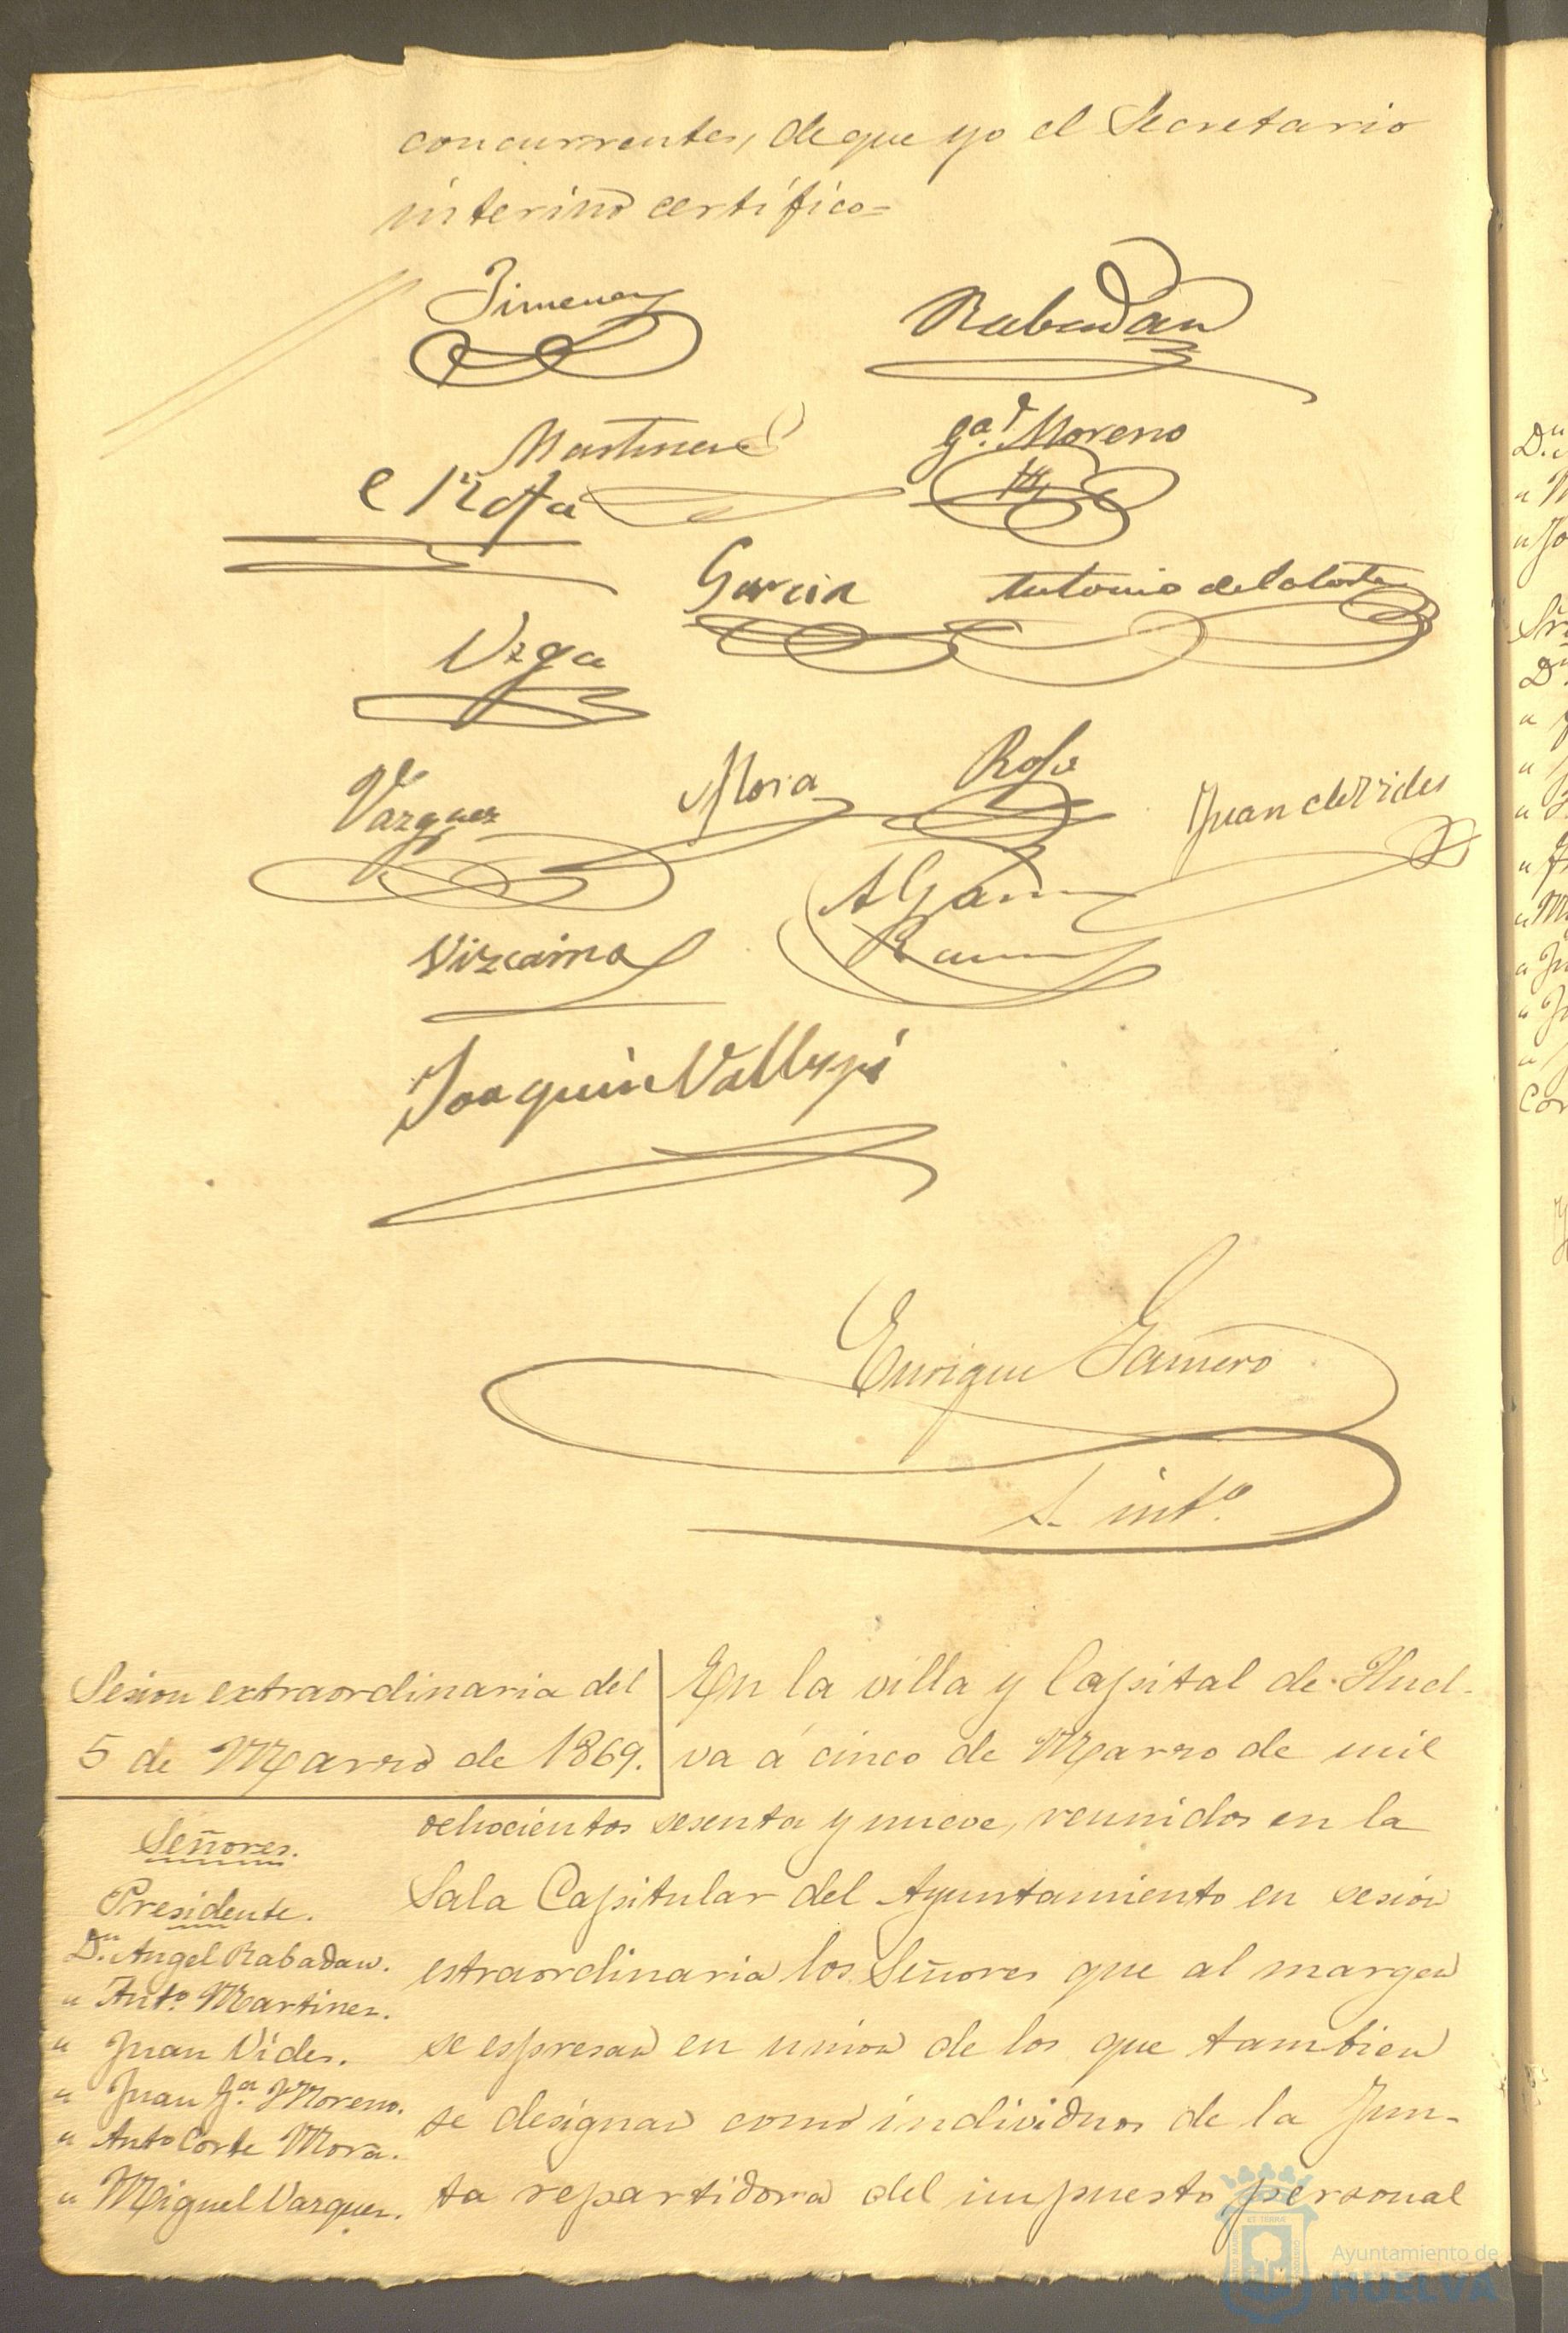 concurrentes, de que yo el Secretario
interino certifico=
Jimenez
Rabadan
Martinez
gª Moreno
Garcia
Antonio de la Corte
Vega
Vazquez
Mora
Rofa
Juan de Vides
A Garcia
Ramos
Vizcaino
Joaquin Vallespi
Enrique Gamero
S. intº
Sesion extraordinaria del
5 de Marzo de 1869.
Señores.
Presidente.
Dn. Angel Rabadan.
" Antº Martinez.
" Juan Vides.
" Juan Gª Moreno.
" Antº Corte Mora.
" Miguel Vazquez.
En la villa y Capital de Huel-
va á cinco de Marzo de mil
ochocientos sesenta y nueve, reunidos en la
Sala Capitular del Ayuntamiento en sesión
estraordinaria los Señores que al margen
se espresan en union de los que tambien
se designan como individuos de la Jun-
ta repartidora del impuesto personal
Ayuntamiento de
HUELVA